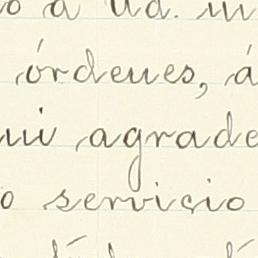 o a Ud. m
órdenes, á
mi agrade
o servicio